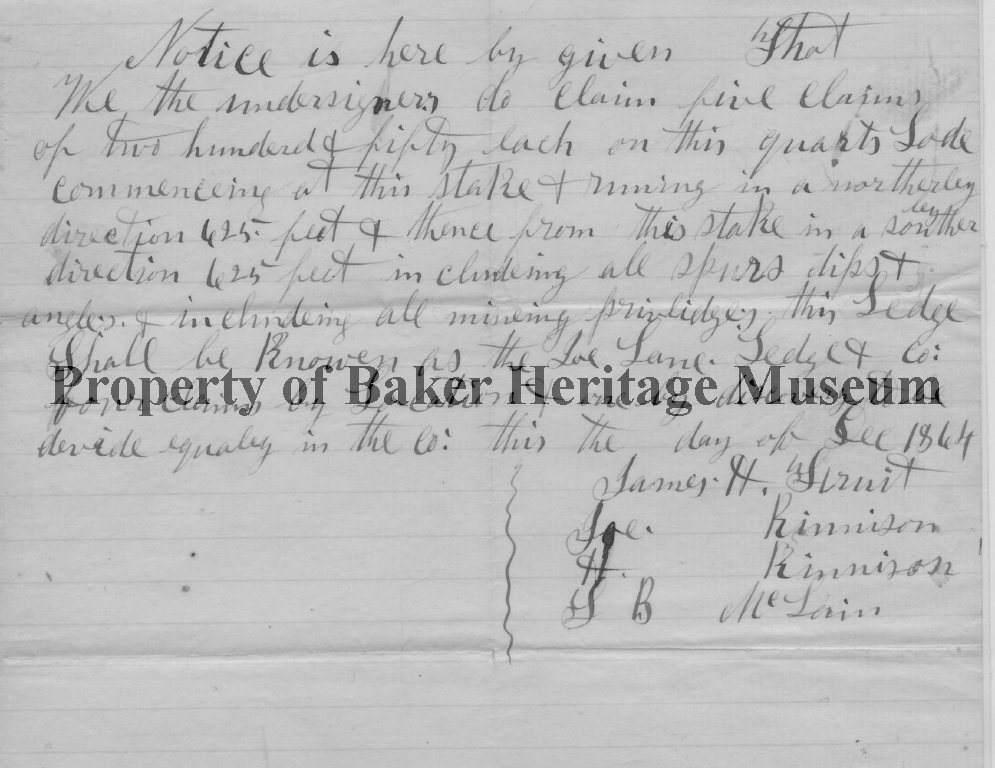 Notice is here by given That
We the undersigners do Claim five Claims
of two hunderd & fifty each on this quarts Lode
commenceing at this stake & runing in a northerley
direction 625 feet & thence from this stake in a souther ley
direction 625 feet in cludeing all spurs dips &
angles. & in cludeing all mineing privlidges. this Ledge
Shall be Knowen as the Joe Lane. Ledge & Co:
Property of Baker Heritage Museum
four claims by Location & one by discovery to be
devide equaley in the Co: this the day of Dec 1864
James. H. Struit
Joe. Rinnison
H. Rinnison
S B McLain